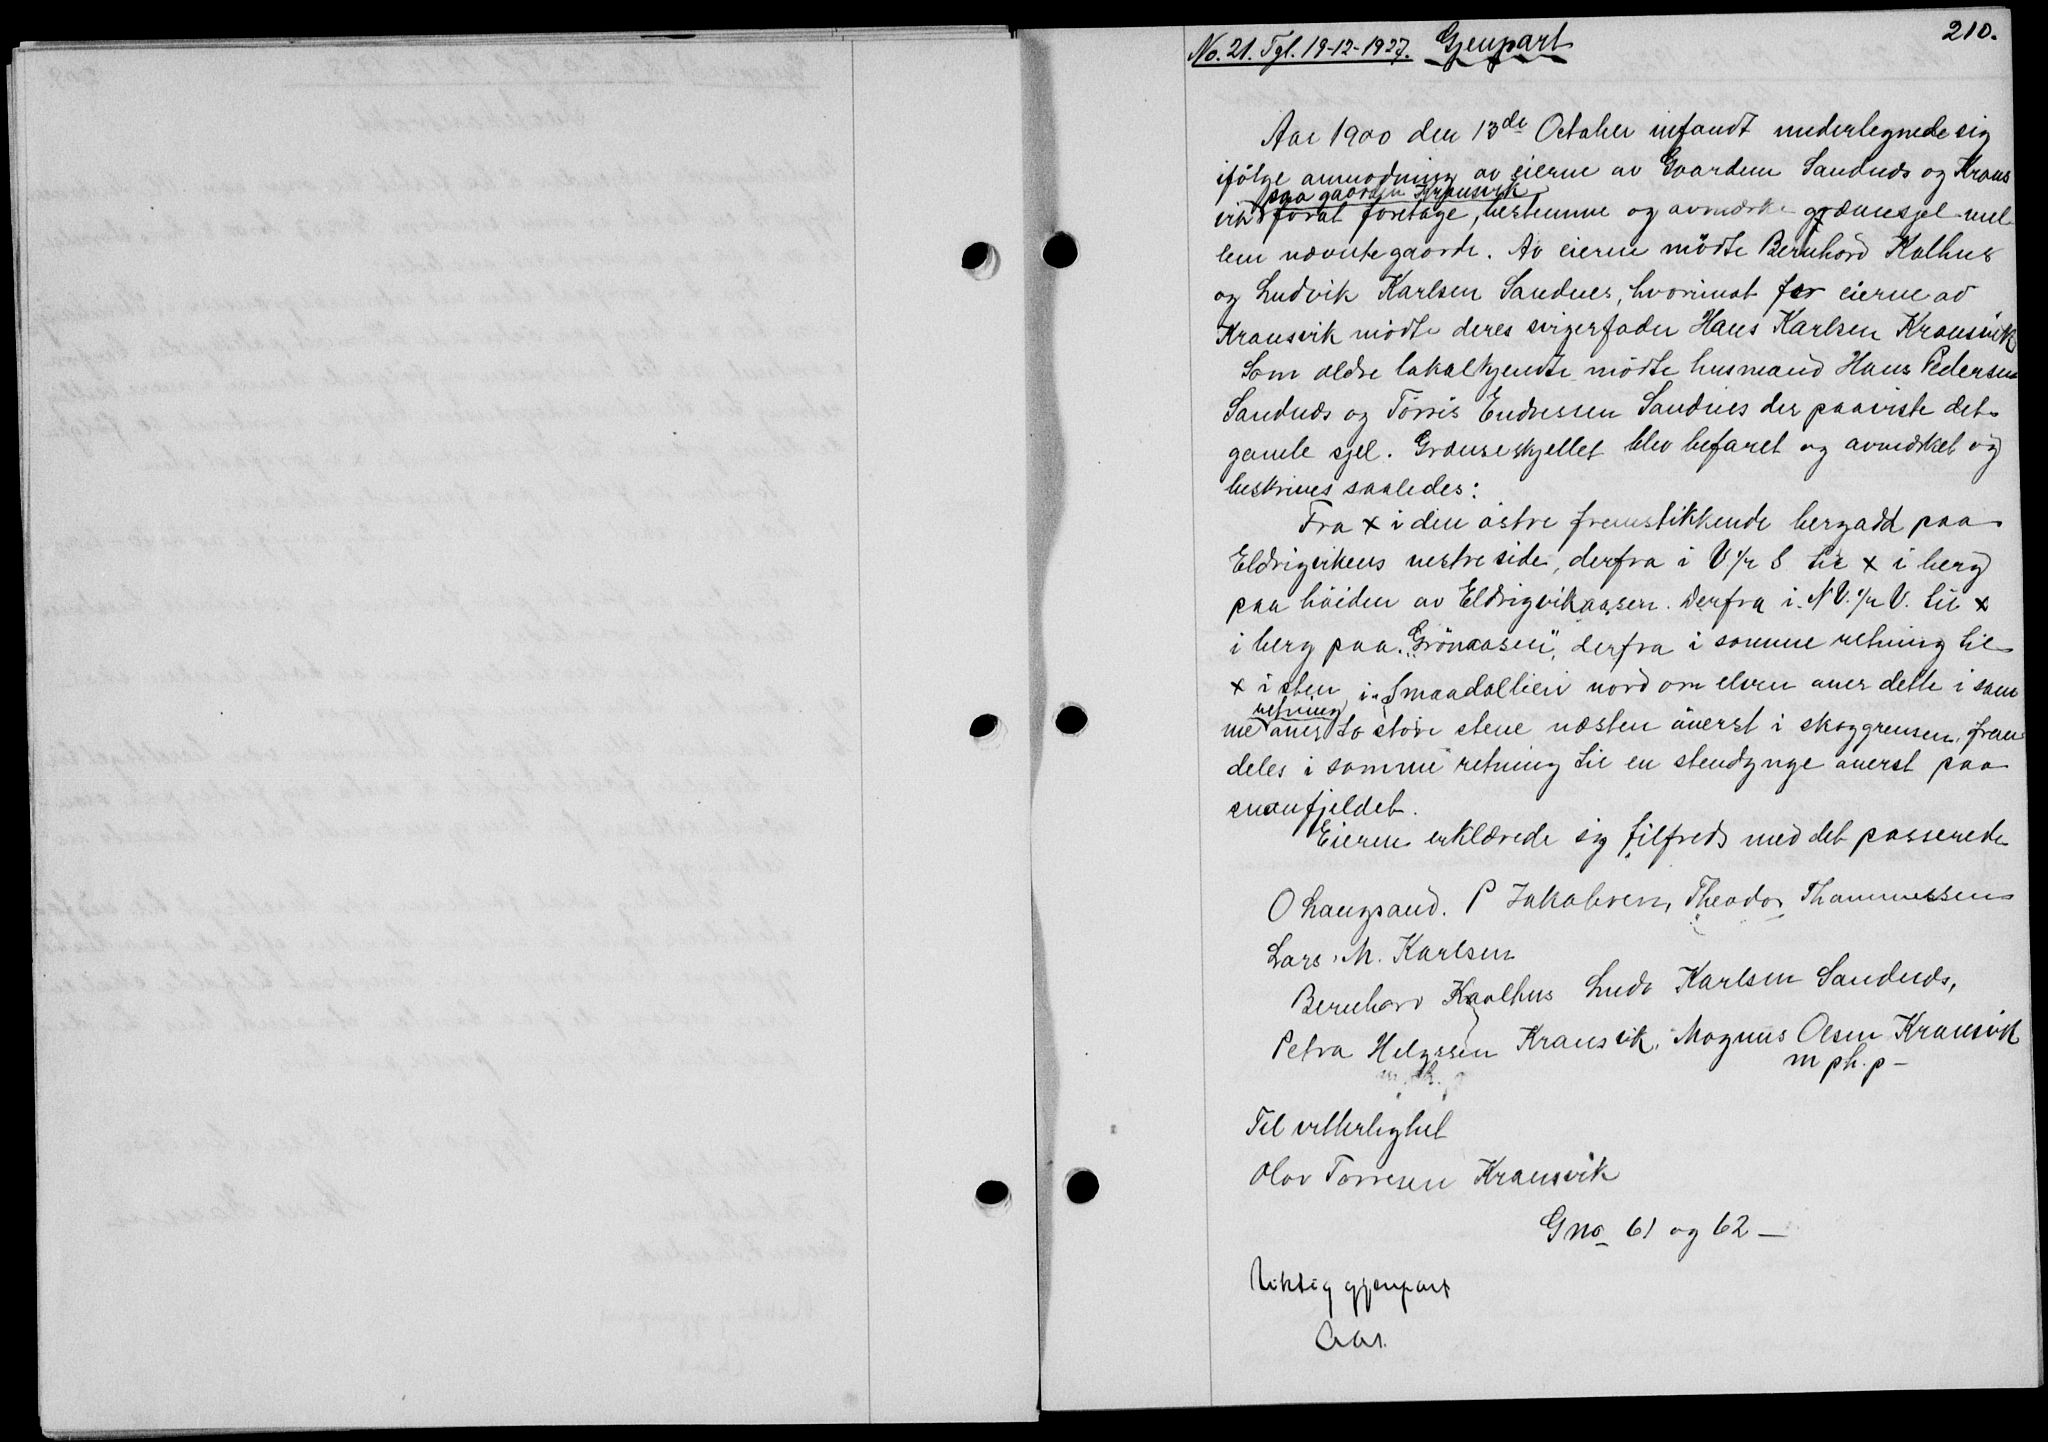 210.
No. 21. Tgl. 19-12-1927. Gjenpart
Aar 1900 den 13de October infandt undertegnede sig
ifölge anmodning av eierne av Gaardene Sandnæs og Krans
vik paa gaarden Kransvik forat foretage, bestemme og avmærke grænsesjel mel
lem nævnte gaarde. Av eierne mödte Bernhard Kalhus
og Ludvik Karlsen Sandnes, hvorimot for eierne av
Kransvik mödte deres svigerfader Hans Karlsen Kransvik
Som ældre lokalkjendte mödte husmand Hans Pedersen
Sandnæs og Törris Endresen Sandnes der paaviste det
gamle sjel. Grænseskjellet blev befaret og avmerket og
beskrives saaledes:
Fra x i den östre fremstikkende bergadd paa
Eldrigvikens vestre side, derfra i V. 1/2 S til x i berg
paa höiden av Eldrigvikaasen. Derfra i NV. 1/2 V. til x
i berg paa "Grönaasen", derfra i samme retning til
x i sten i "Smaadallien nord om elven över dette i sam
me retning över to store stene næsten överst i skoggrensen, frem
deles i samme retning til en stendynge överst paa
snaufjeldet.
Eierne erklærede sig tilfreds med det passerede
O Langsand. P Jakobsen, Theodor Thommessen
Lars M. Karlsen
Bernhard Kaalhus Ludv Karlsen Sandnæs,
Petra Helgesen Kransvik, Magnus Olsen Kransvik
m. ph. p m ph. p -
Til vitterlighet
Olav Torresen Kransvik
Gno 61 og 62 -
Riktig gjenpart